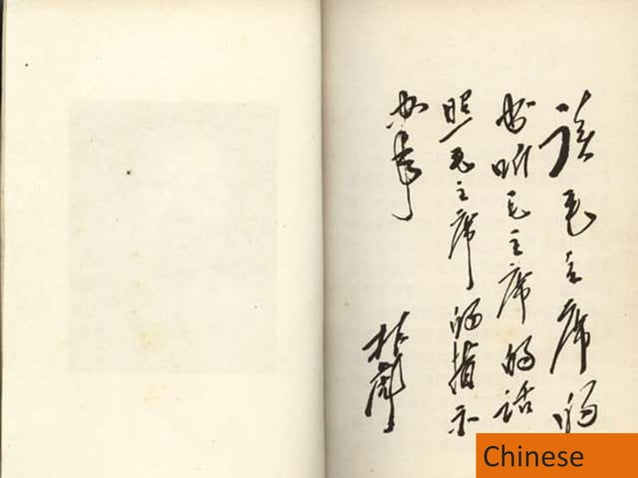 读毛主席的
书听毛主席的话
照毛主席的指示
办事
林彪
Chinese